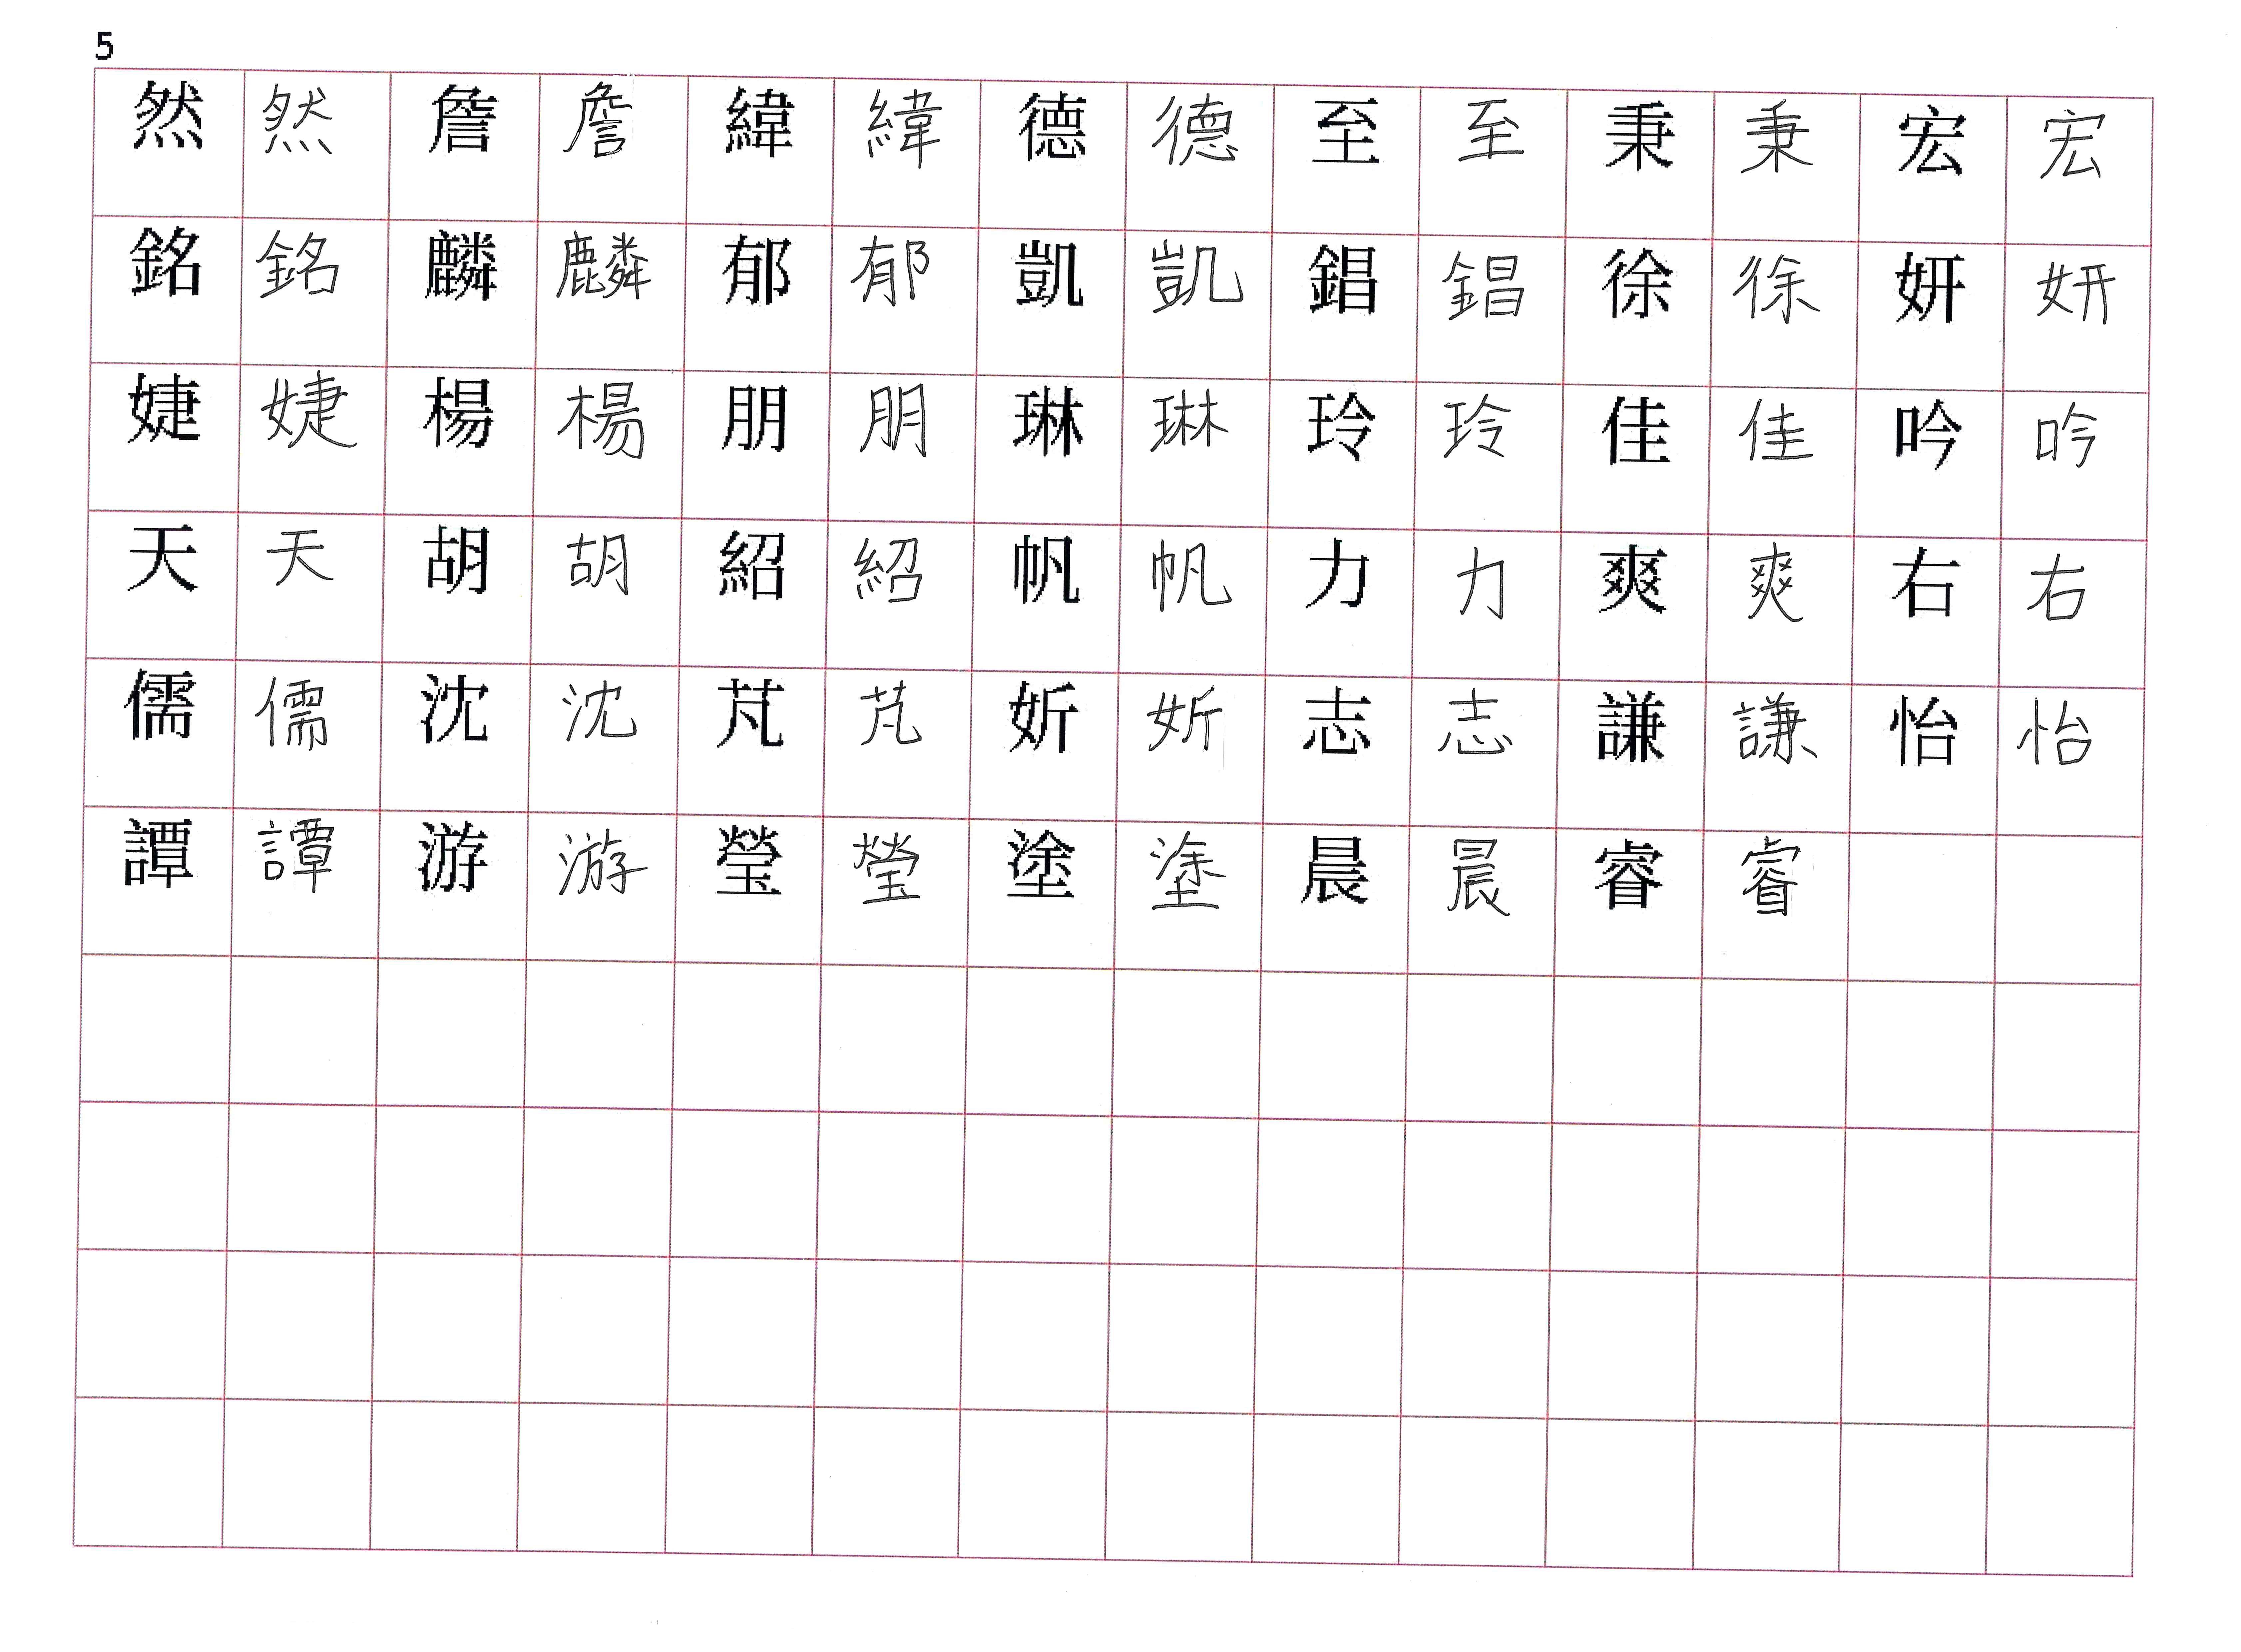 5
然 然 詹 詹 緯 緯 德 德 至 至 秉 秉 宏 宏
銘 銘 麟 麟 郁 郁 凱 凱 錩 錩 徐 徐 妍 妍
婕 婕 楊 楊 朋 朋 琳 琳 玲 玲 佳 佳 吟 吟
天 天 胡 胡 紹 紹 帆 帆 力 力 爽 爽 右 右
儒 儒 沈 沈 芃 芃 妡 妡 志 志 謙 謙 怡 怡
譚 譚 游 游 瑩 瑩 塗 塗 晨 晨 睿 睿